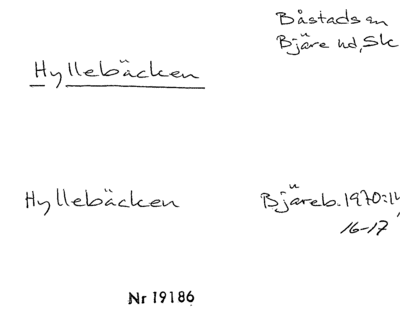 Båstads sn
Bjäre hd, Sk
Hyllebäcken
Hyllebäcken
Bjäreb. 1970:14,
16-17
Nr 19186